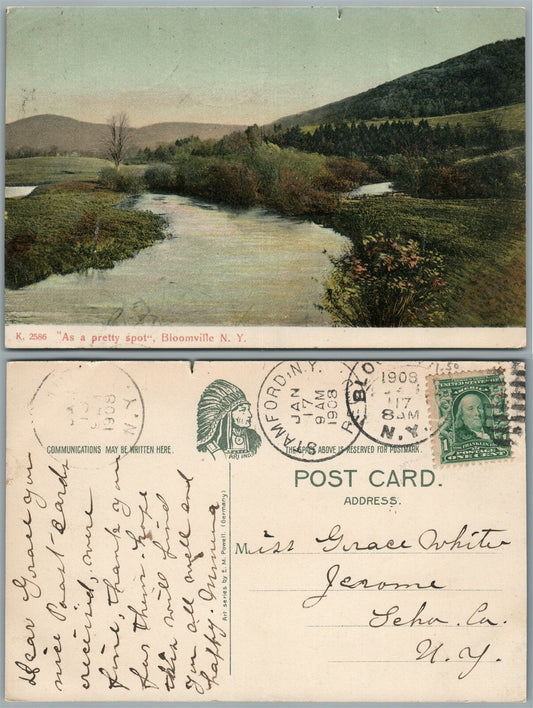 K. 2586 "As a pretty spot", Bloomville N. Y.
COMMUNICATIONS MAY BE WRITTEN HERE.
THE SPACE ABOVE IS RESERVED FOR POSTMARK.
POST CARD.
ADDRESS.
STAMFORD, N.Y.
JAN
17
9 AM
1908
REC'D.
1908
17
8 AM
N.Y.
1908
UNITED STATES
FRANKLIN
POSTAGE
ONE CENT
Art series by E. M. Powell. (Germany)
Miss Grace White
Jerome
Scho. Co.
N. Y.
Dear Grace your
nice Post-cards
received, were
fine, thank you
for them. hope
this will find
you all well and
happy. Minnie